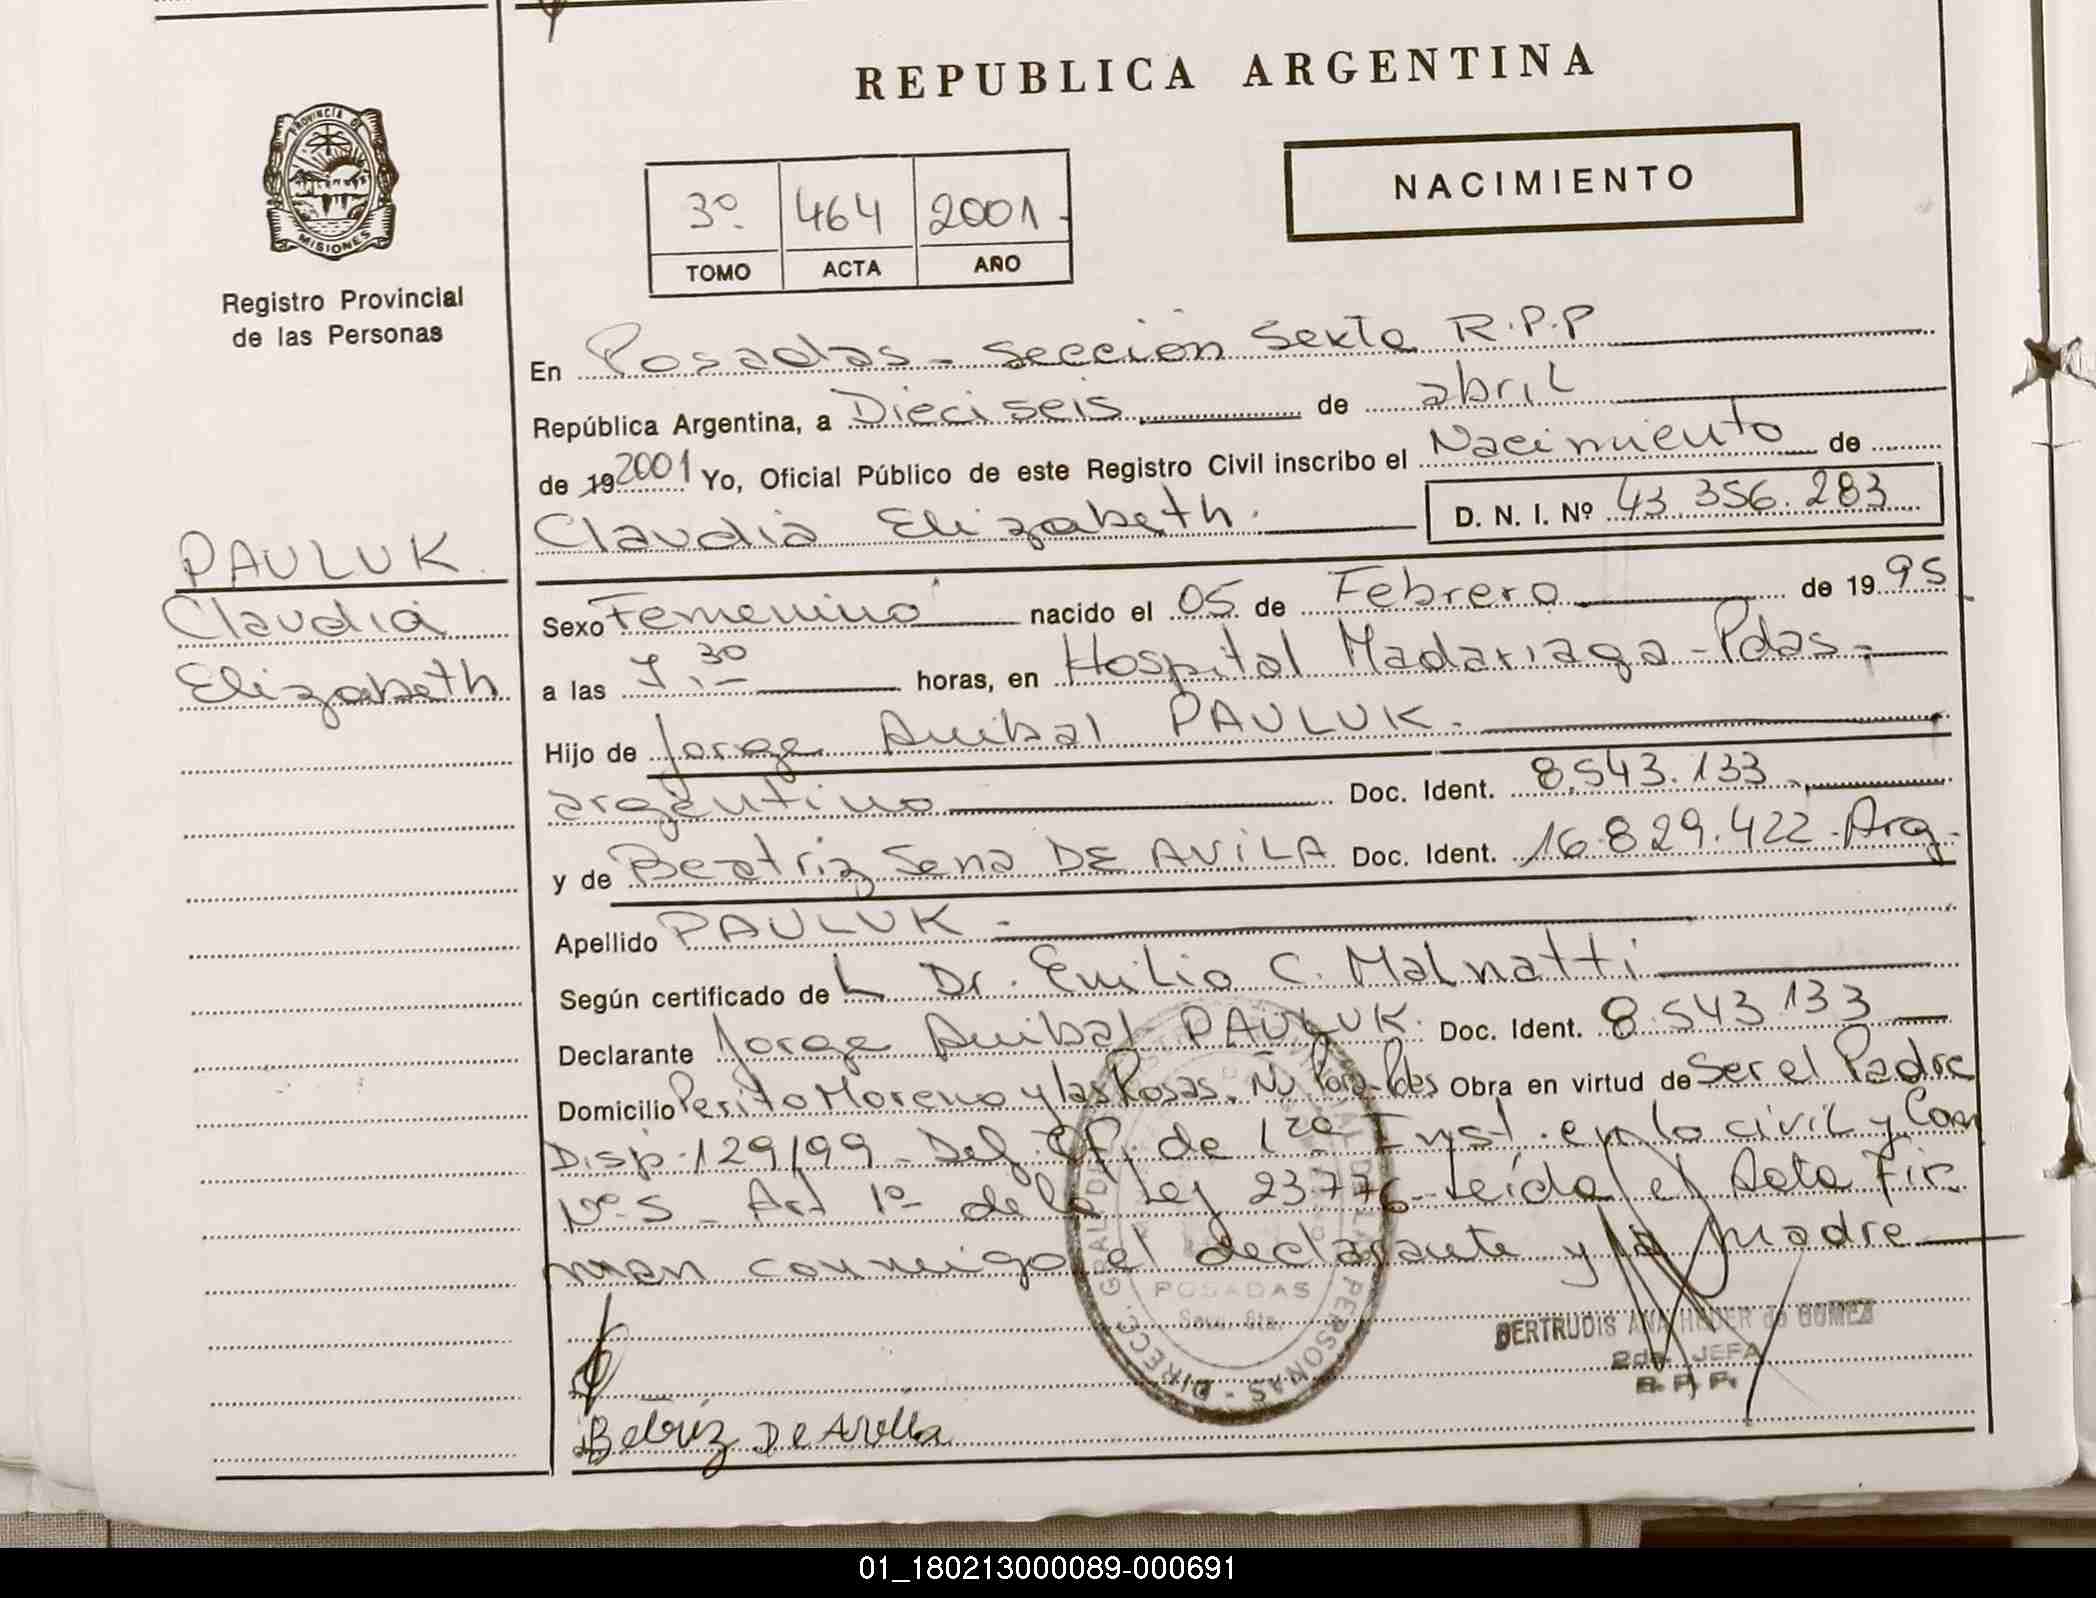 REPUBLICA ARGENTINA
PROVINCIA DE
MISIONES
Registro Provincial
de las Personas
NACIMIENTO
3º 464 2001
TOMO ACTA AÑO
En Posadas - Sección Sexta R.P.P
República Argentina, a Dieciseis de abril
de 19 2001 Yo, Oficial Público de este Registro Civil inscribo el Nacimiento de
Claudia Elizabeth. D. N. I. Nº 43.356.283
PAULUK
Claudia
Elizabeth
Sexo Femenino nacido el 05 de Febrero de 1995
a las 7.30 horas, en Hospital Madariaga - Pdas.-
Hijo de Jorge Anibal PAULUK.
argentino Doc. Ident. 8.543.133
y de Beatriz Sena DE AVILA Doc. Ident. 16.829.422 - Arg.
Apellido PAULUK -
Según certificado de L Dr. Emilio C. Malnatti
Declarante Jorge Anibal PAULUK. Doc. Ident. 8.543.133
Domicilio Perito Moreno y las Rosas. Ñu Pora - Pdas Obra en virtud de Ser el Padre
Disp. 129/99 - Def. Of. de 1ra Inst. en lo civil y Com
Nº 5 - Art 1º de la Ley 23776 - Leída el Acta Fir
man conmigo el declarante y la madre
POSADAS
Secc. 6ta.
GERTRUDIS ANA de GOMEZ
2da. JEFA
R. P. P.
Betriz De Avila
01_180213000089-000691